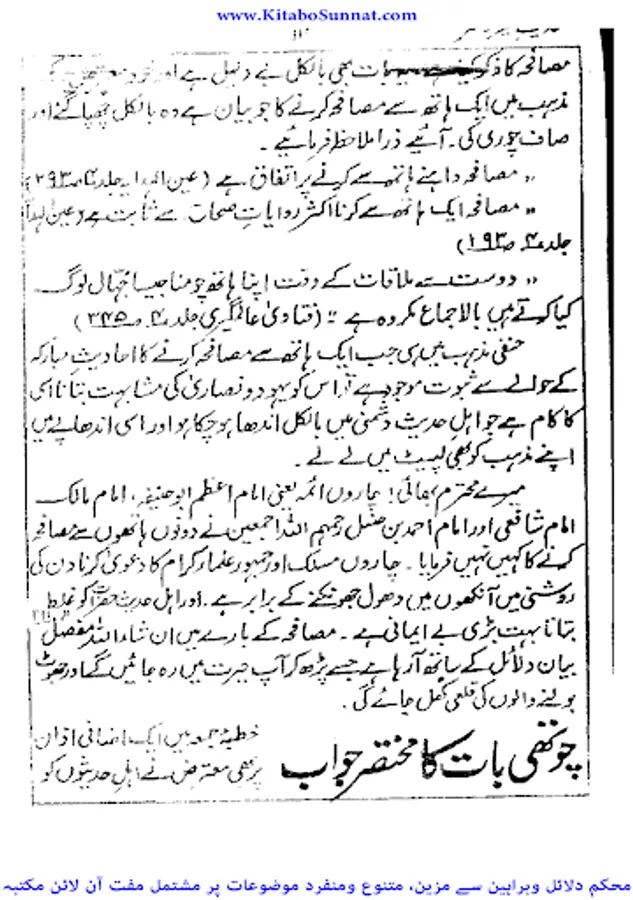 www.KitaboSunnat.com
مصافحہ کا ذکر بات بھی بالکل بے دلیل ہے اور خود
مذہب میں ایک ہاتھ سے مصافحہ کرنے کا جو بیان ہے وہ بالکل چھپا گئے اور
صاف چوری کی۔ آئیے ذرا ملاحظہ فرمائیے۔
" مصافحہ داہنے ہاتھ سے کرنے پر اتفاق ہے (عین الہدایہ جلد
" مصافحہ ایک ہاتھ سے کرنا اکثر روایات صحاح سے ثابت ہے (عین الہدایہ
جلد ۴ ص ۱۹۳)
" دوست سے ملاقات کے وقت اپنا ہاتھ چومنا جیسا جہال لوگ
کیا کرتے ہیں بالاجماع مکروہ ہے " (فتاویٰ عالمگیری جلد ۴ ص ۳۴۵)
حنفی مذہب میں ہی جب ایک ہاتھ سے مصافحہ کرنے کا احادیث مبارکہ
کے حوالے سے ثبوت موجود ہے تو اس کو یہود و نصاریٰ کی مشابہت بتانا اسی
کا کام ہے جو اہل حدیث دشمنی میں بالکل اندھا ہو چکا ہو اور اسی اندھاپے میں
اپنے مذہب کو بھی لپیٹ میں لے لے۔
میرے محترم بھائی! چاروں ائمہ یعنی امام اعظم ابو حنیفہ، امام مالک
امام شافعی اور امام احمد بن حنبل رحمہم اللہ اجمعین نے دونوں ہاتھوں سے مصافحہ
کرنے کا کہیں نہیں فرمایا۔ چاروں مسلک اور جمہور علماء کرام کا دعویٰ کرنا دن کی
روشنی میں آنکھوں میں دھول جھونکنے کے برابر ہے۔ اور اہل حدیث حضرات کو غلط
بتانا بہت بڑی بے ایمانی ہے۔ مصافحہ کے بارے میں ان شاء اللہ مفصل
بیان دلائل کے ساتھ آرہا ہے جسے پڑھ کر آپ حیرت میں رہ جائیں گے اور جھوٹ
بولنے والوں کی قلعی کھل جائے گی۔
چوتھی بات کا مختصر جواب
خطبۂ جمعہ میں ایک اضافی اذان
پر بھی معترض نے اہل حدیثوں کو
محکم دلائل وبراہین سے مزین، متنوع ومنفرد موضوعات پر مشتمل مفت آن لائن مکتبہ